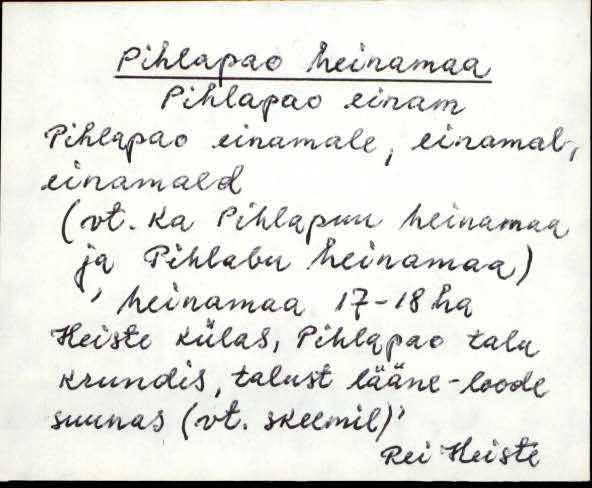 Pihlapao heinamaa
Pihlapao einam
Pihlapao einamale, einamal,
einamald
(vt. ka Pihlapuu heinamaa
ja Pihlabu heinamaa)
' heinamaa 17-18 ha
Heiste külas, Pihlapao talu
krundis, talust lääne-loode
suunas (vt. skeemil)'
Rei Heiste